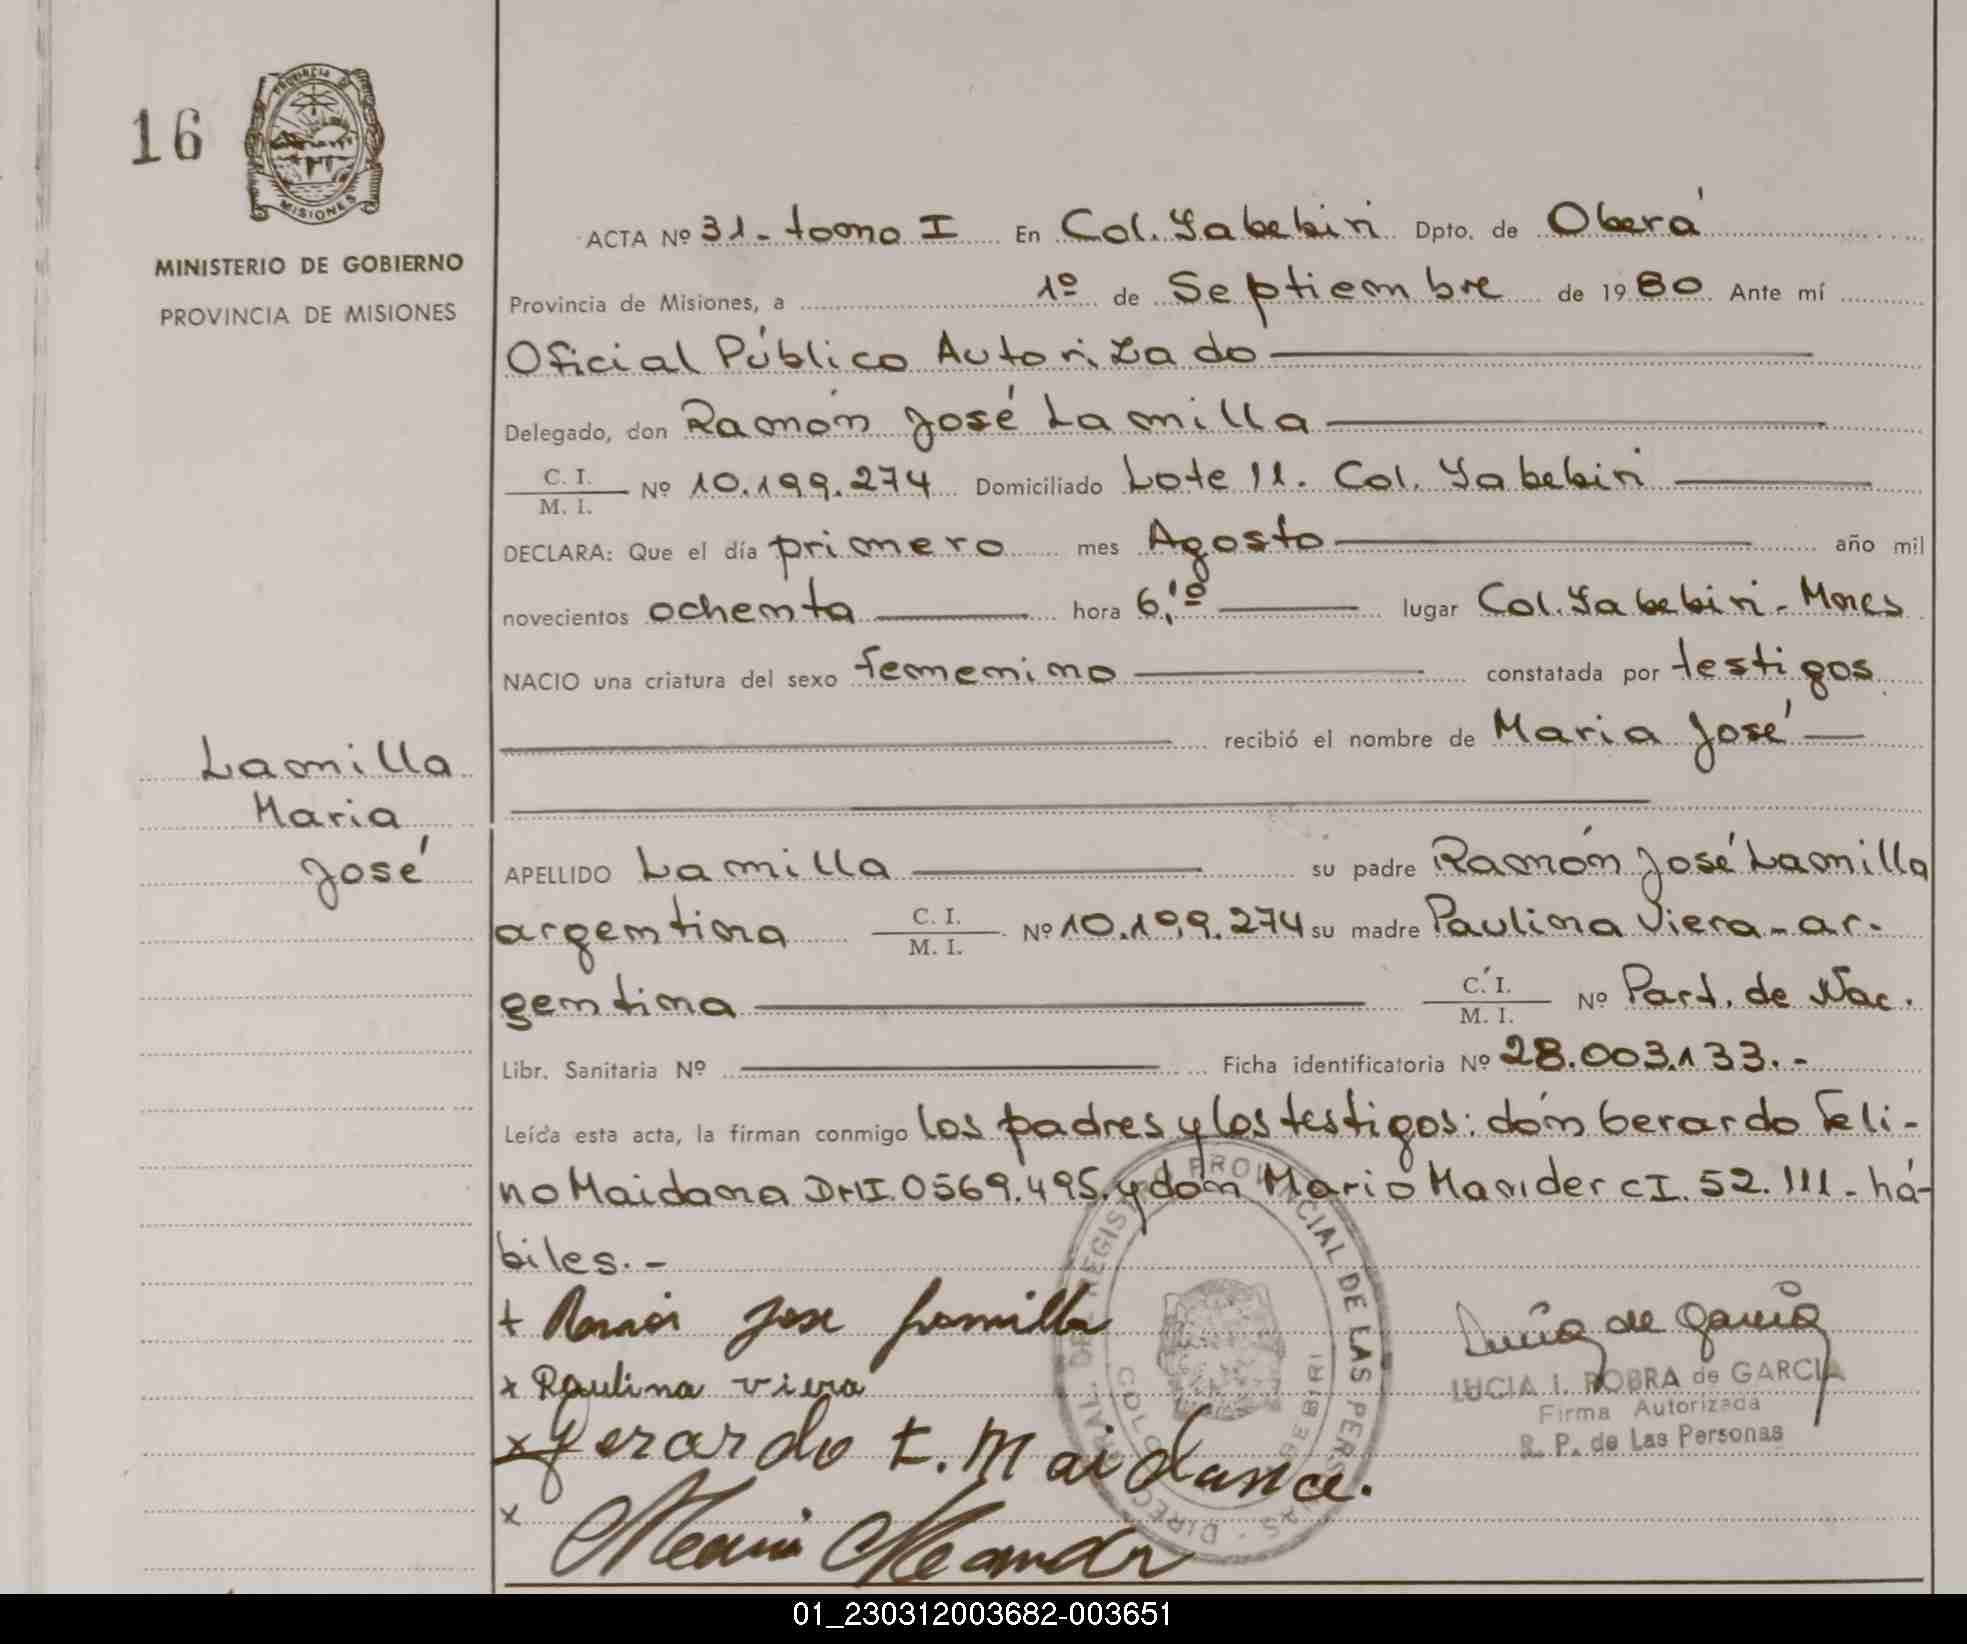 16
PROVINCIA DE
MISIONES
MINISTERIO DE GOBIERNO
PROVINCIA DE MISIONES
ACTA Nº 31 - tomo I En Col. Yabebiri Dpto. de Oberá
Provincia de Misiones, a 1º de Septiembre de 1980 Ante mí
Oficial Público Autorizado
Delegado, don Ramón José Lamilla
C. I. / M. I. Nº 10.199.274 Domiciliado Lote 11. Col. Yabebiri
DECLARA: Que el día primero mes Agosto año mil
novecientos ochenta hora 6,10 lugar Col. Yabebiri - Mnes
NACIO una criatura del sexo femenino constatada por testigos
recibió el nombre de Maria José
Lamilla
Maria
José
APELLIDO Lamilla su padre Ramón José Lamilla
argentina C. I. / M. I. Nº 10.199.274 su madre Paulina Viera - ar-
gentina C. I. / M. I. Nº Part. de Nac.
Libr. Sanitaria Nº Ficha identificatoria Nº 28.003.133.-
Leída esta acta, la firman conmigo los padres y los testigos: dón Gerardo Feli-
no Maidana DMI. 0569.495. y dón Mario Mander CI. 52.111 - há-
biles. -
+ Ramón Jose Lamilla
x Paulina viera
x Gerardo F. Maidana.
x Mario Mander
Lucia de Garcia
LUCIA I. ROBRA de GARCIA
Firma Autorizada
R. P. de Las Personas
REGISTRO PROVINCIAL DE LAS PERSONAS
01_230312003682-003651